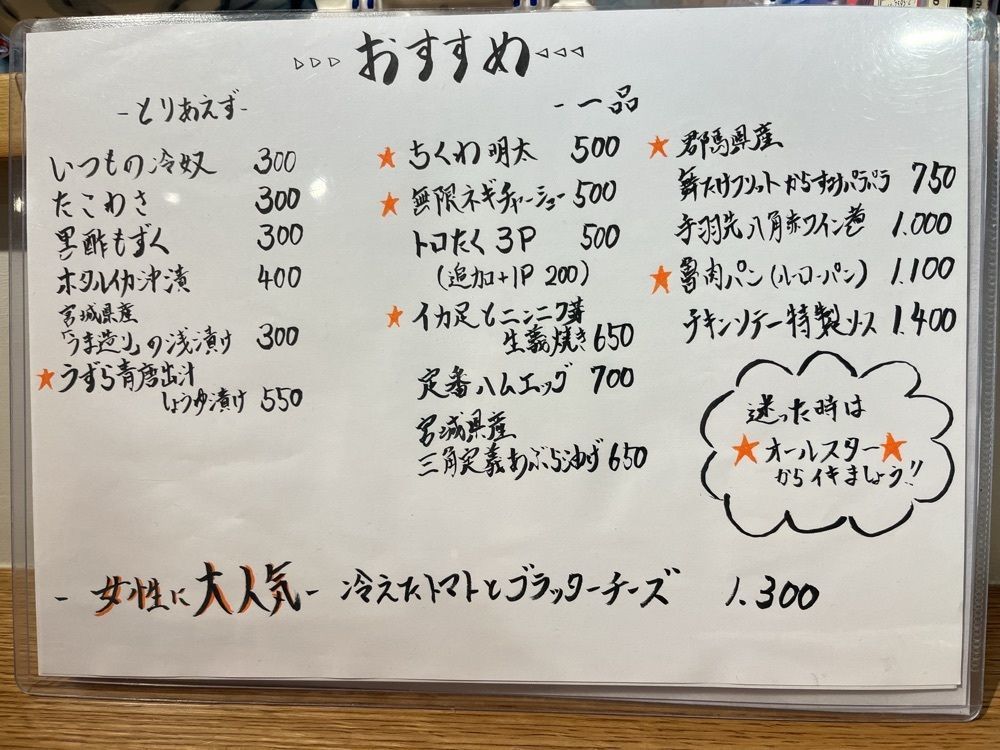 ▷▷▷ おすすめ ◁◁◁
-とりあえず-
いつもの冷奴 300
たこわさ 300
黒酢もずく 300
ホタルイカ沖漬 400
宮城県産
「うま造り」の浅漬け 300
★うずら青唐出汁
しょうゆ漬け 550
- 一品
★ちくわ明太 500
★無限ネギチャーシュー 500
トロたく 3P 500
(追加+1P 200)
★イカ足とニンニク芽
生姜焼き 650
定番ハムエッグ 700
宮城県産
三角定義あぶら油げ 650
★群馬県産
舞たけフリットからすみパラパラ 750
手羽先八角赤ワイン煮 1.000
★魯肉パン(ルーローパン) 1.100
チキンソテー特製ソース 1.400
迷った時は
★オールスター★
からイキましょう!!
- 女性に大人気 - 冷えたトマトとブラッターチーズ 1.300